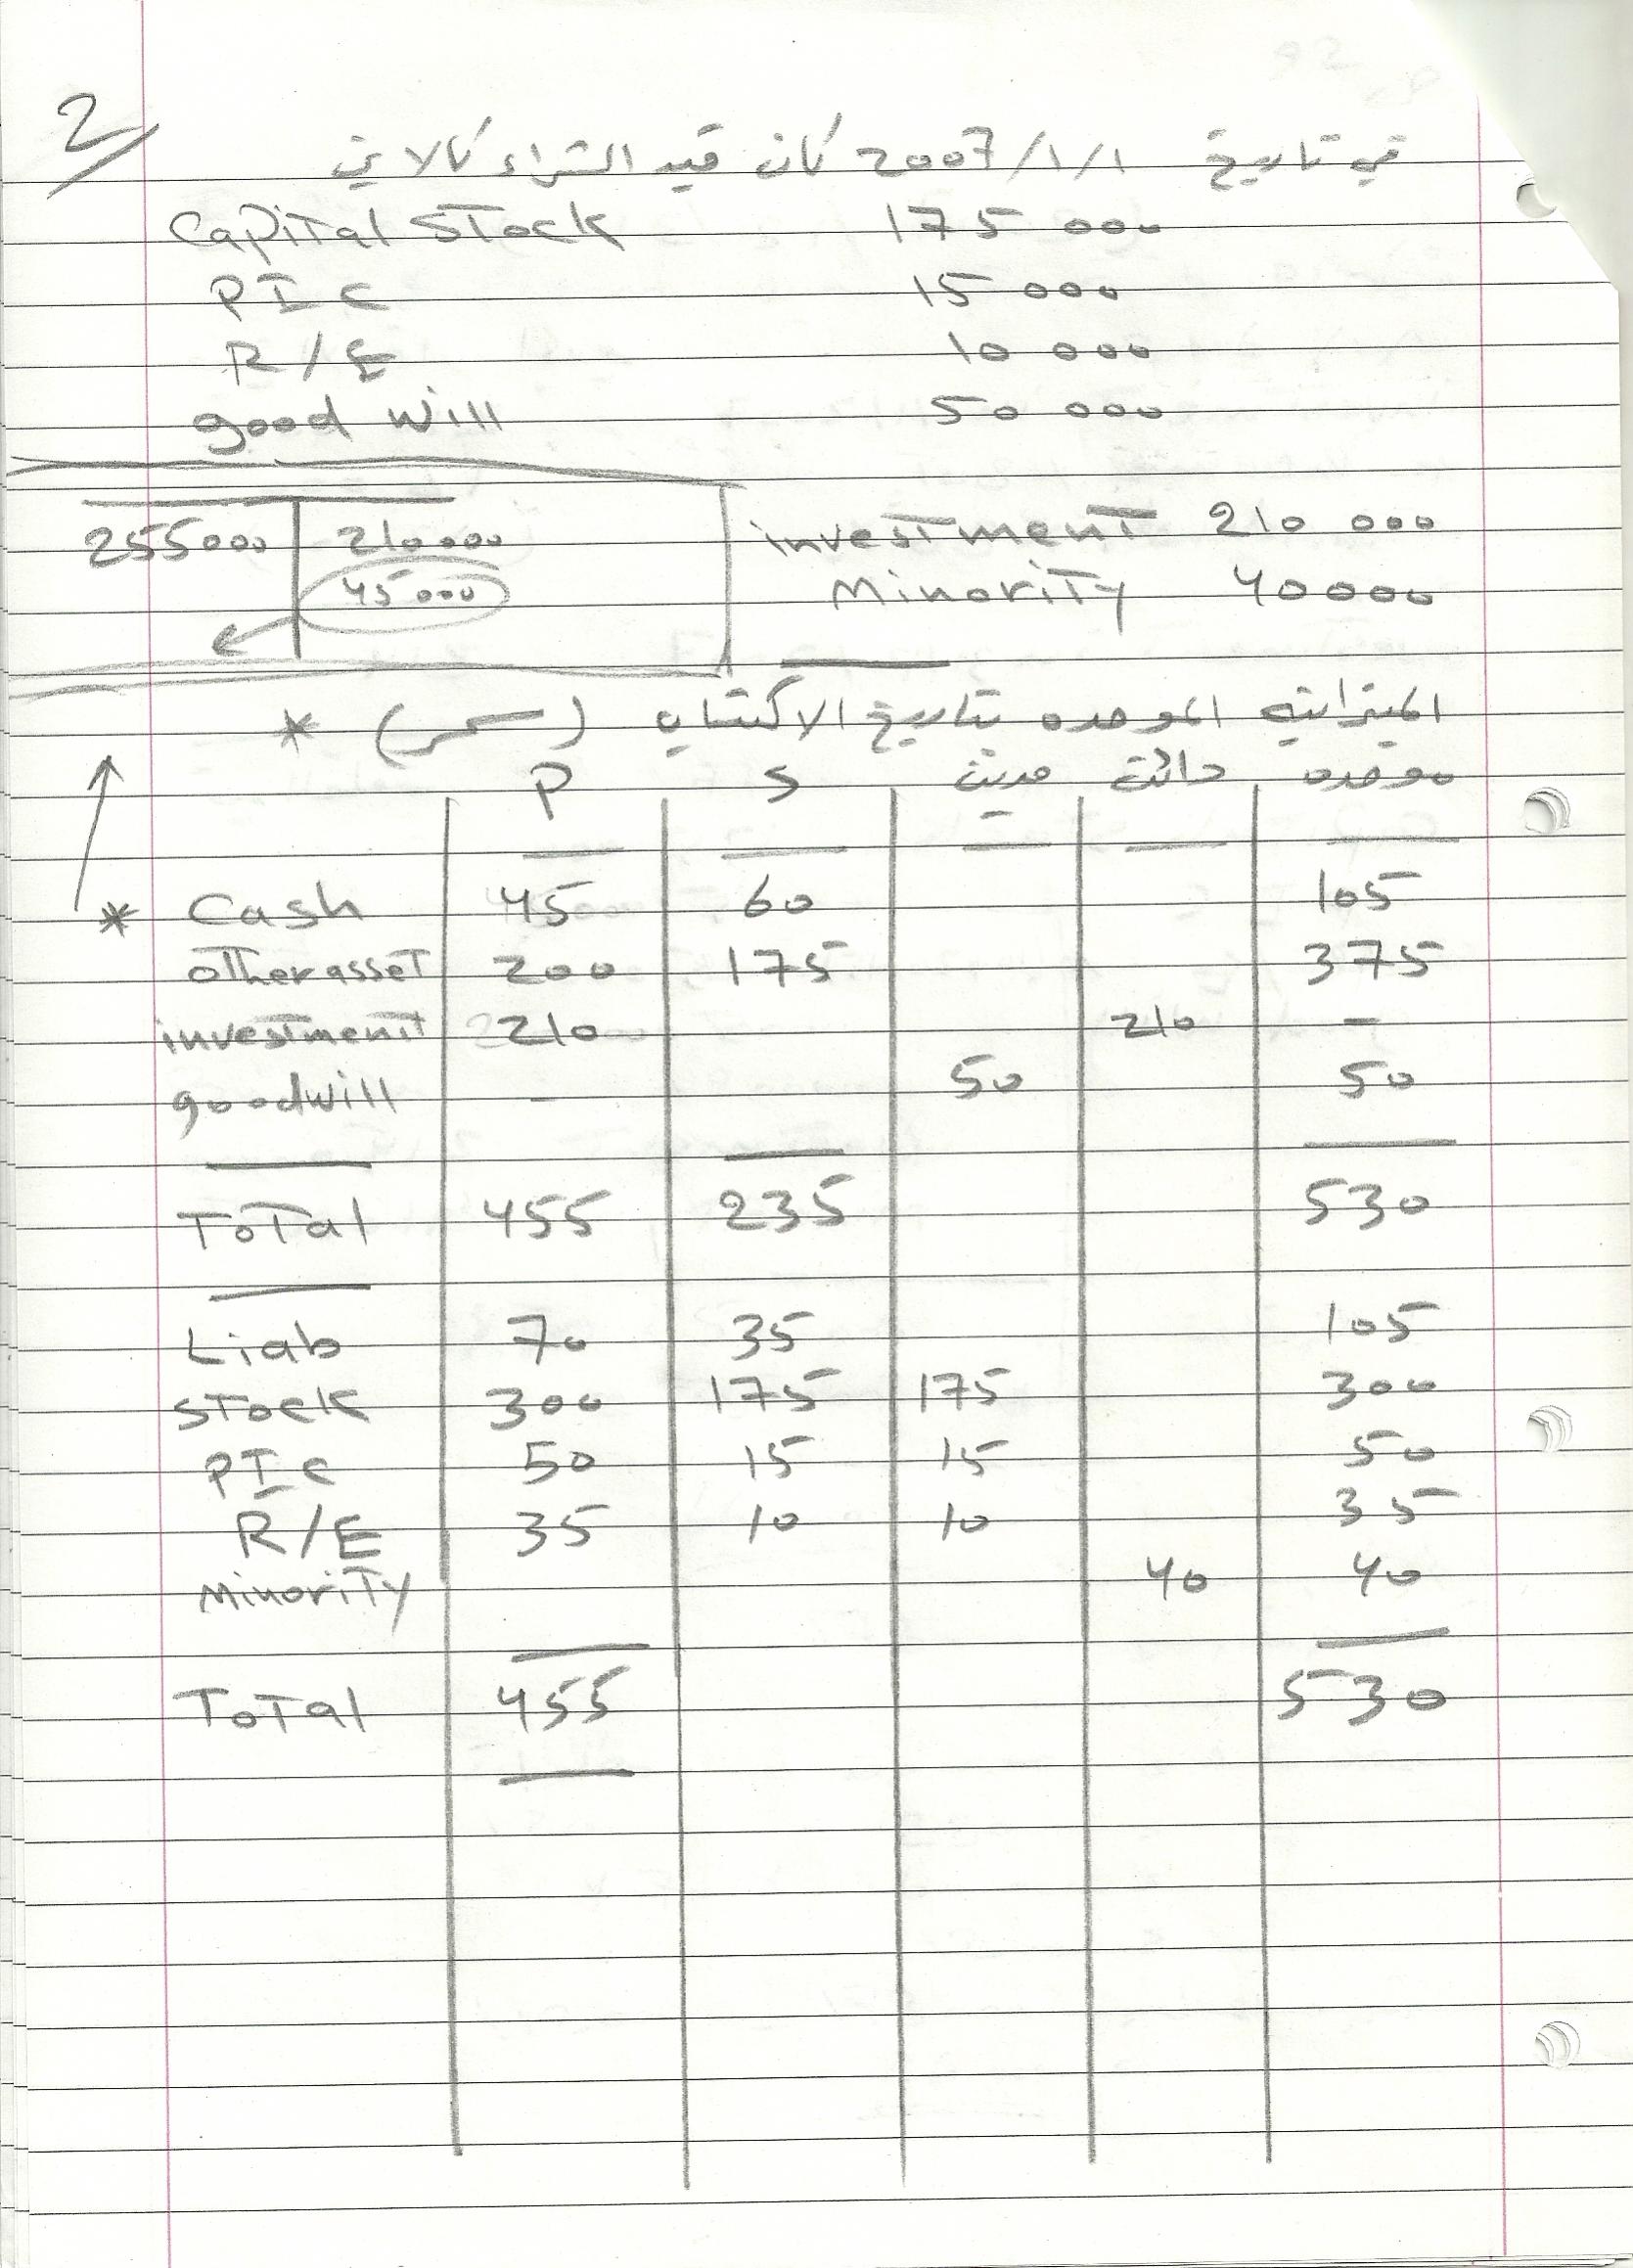 2
في تاريخ 2007/1/1 كان قيد الشراء كالاتي
Capital Stock 175 000
PIC 15 000
R/E 10 000
good will 50 000
255000 210000
45000
investment 210 000
Minority 40000
الميزانيه الموحده بتاريخ الاكتساب *
P S مدين دائن موحده
* Cash 45 60 105
other asset 200 175 375
investment 210 210 -
goodwill - 50 50
Total 455 235 530
Liab 70 35 105
stock 300 175 175 300
PIC 50 15 15 50
R/E 35 10 10 35
Minority 40 40
Total 455 530